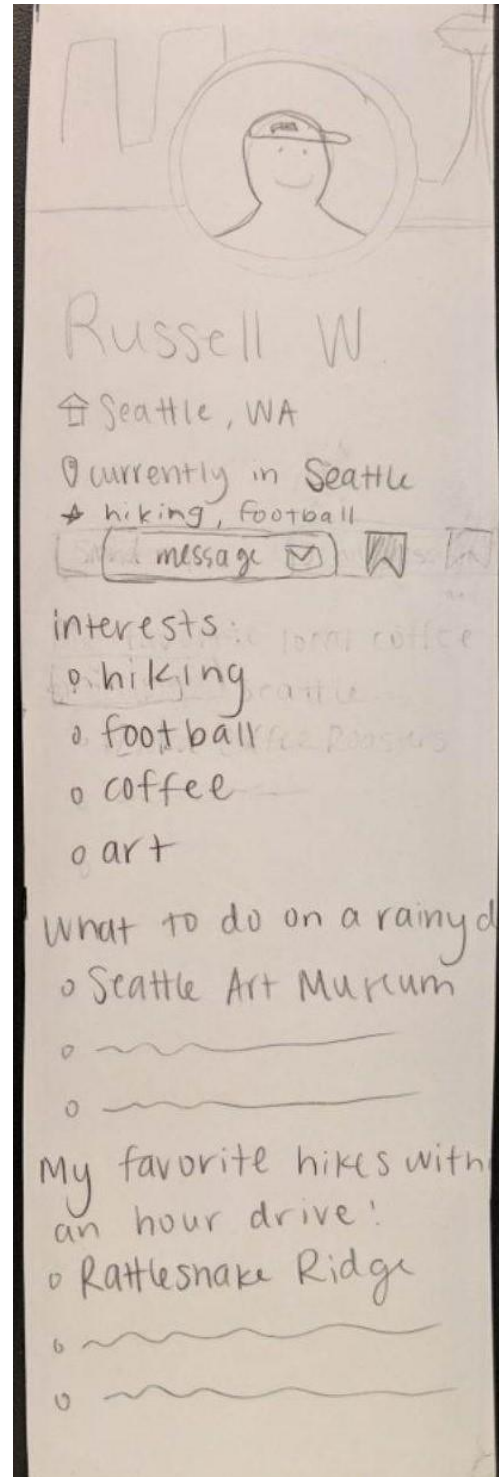 Russell W
Seattle, WA
currently in Seattle
hiking, football
message
interests:
hiking
football
coffee
art
What to do on a rainy d
Seattle Art Museum
My favorite hikes with
an hour drive:
Rattlesnake Ridge